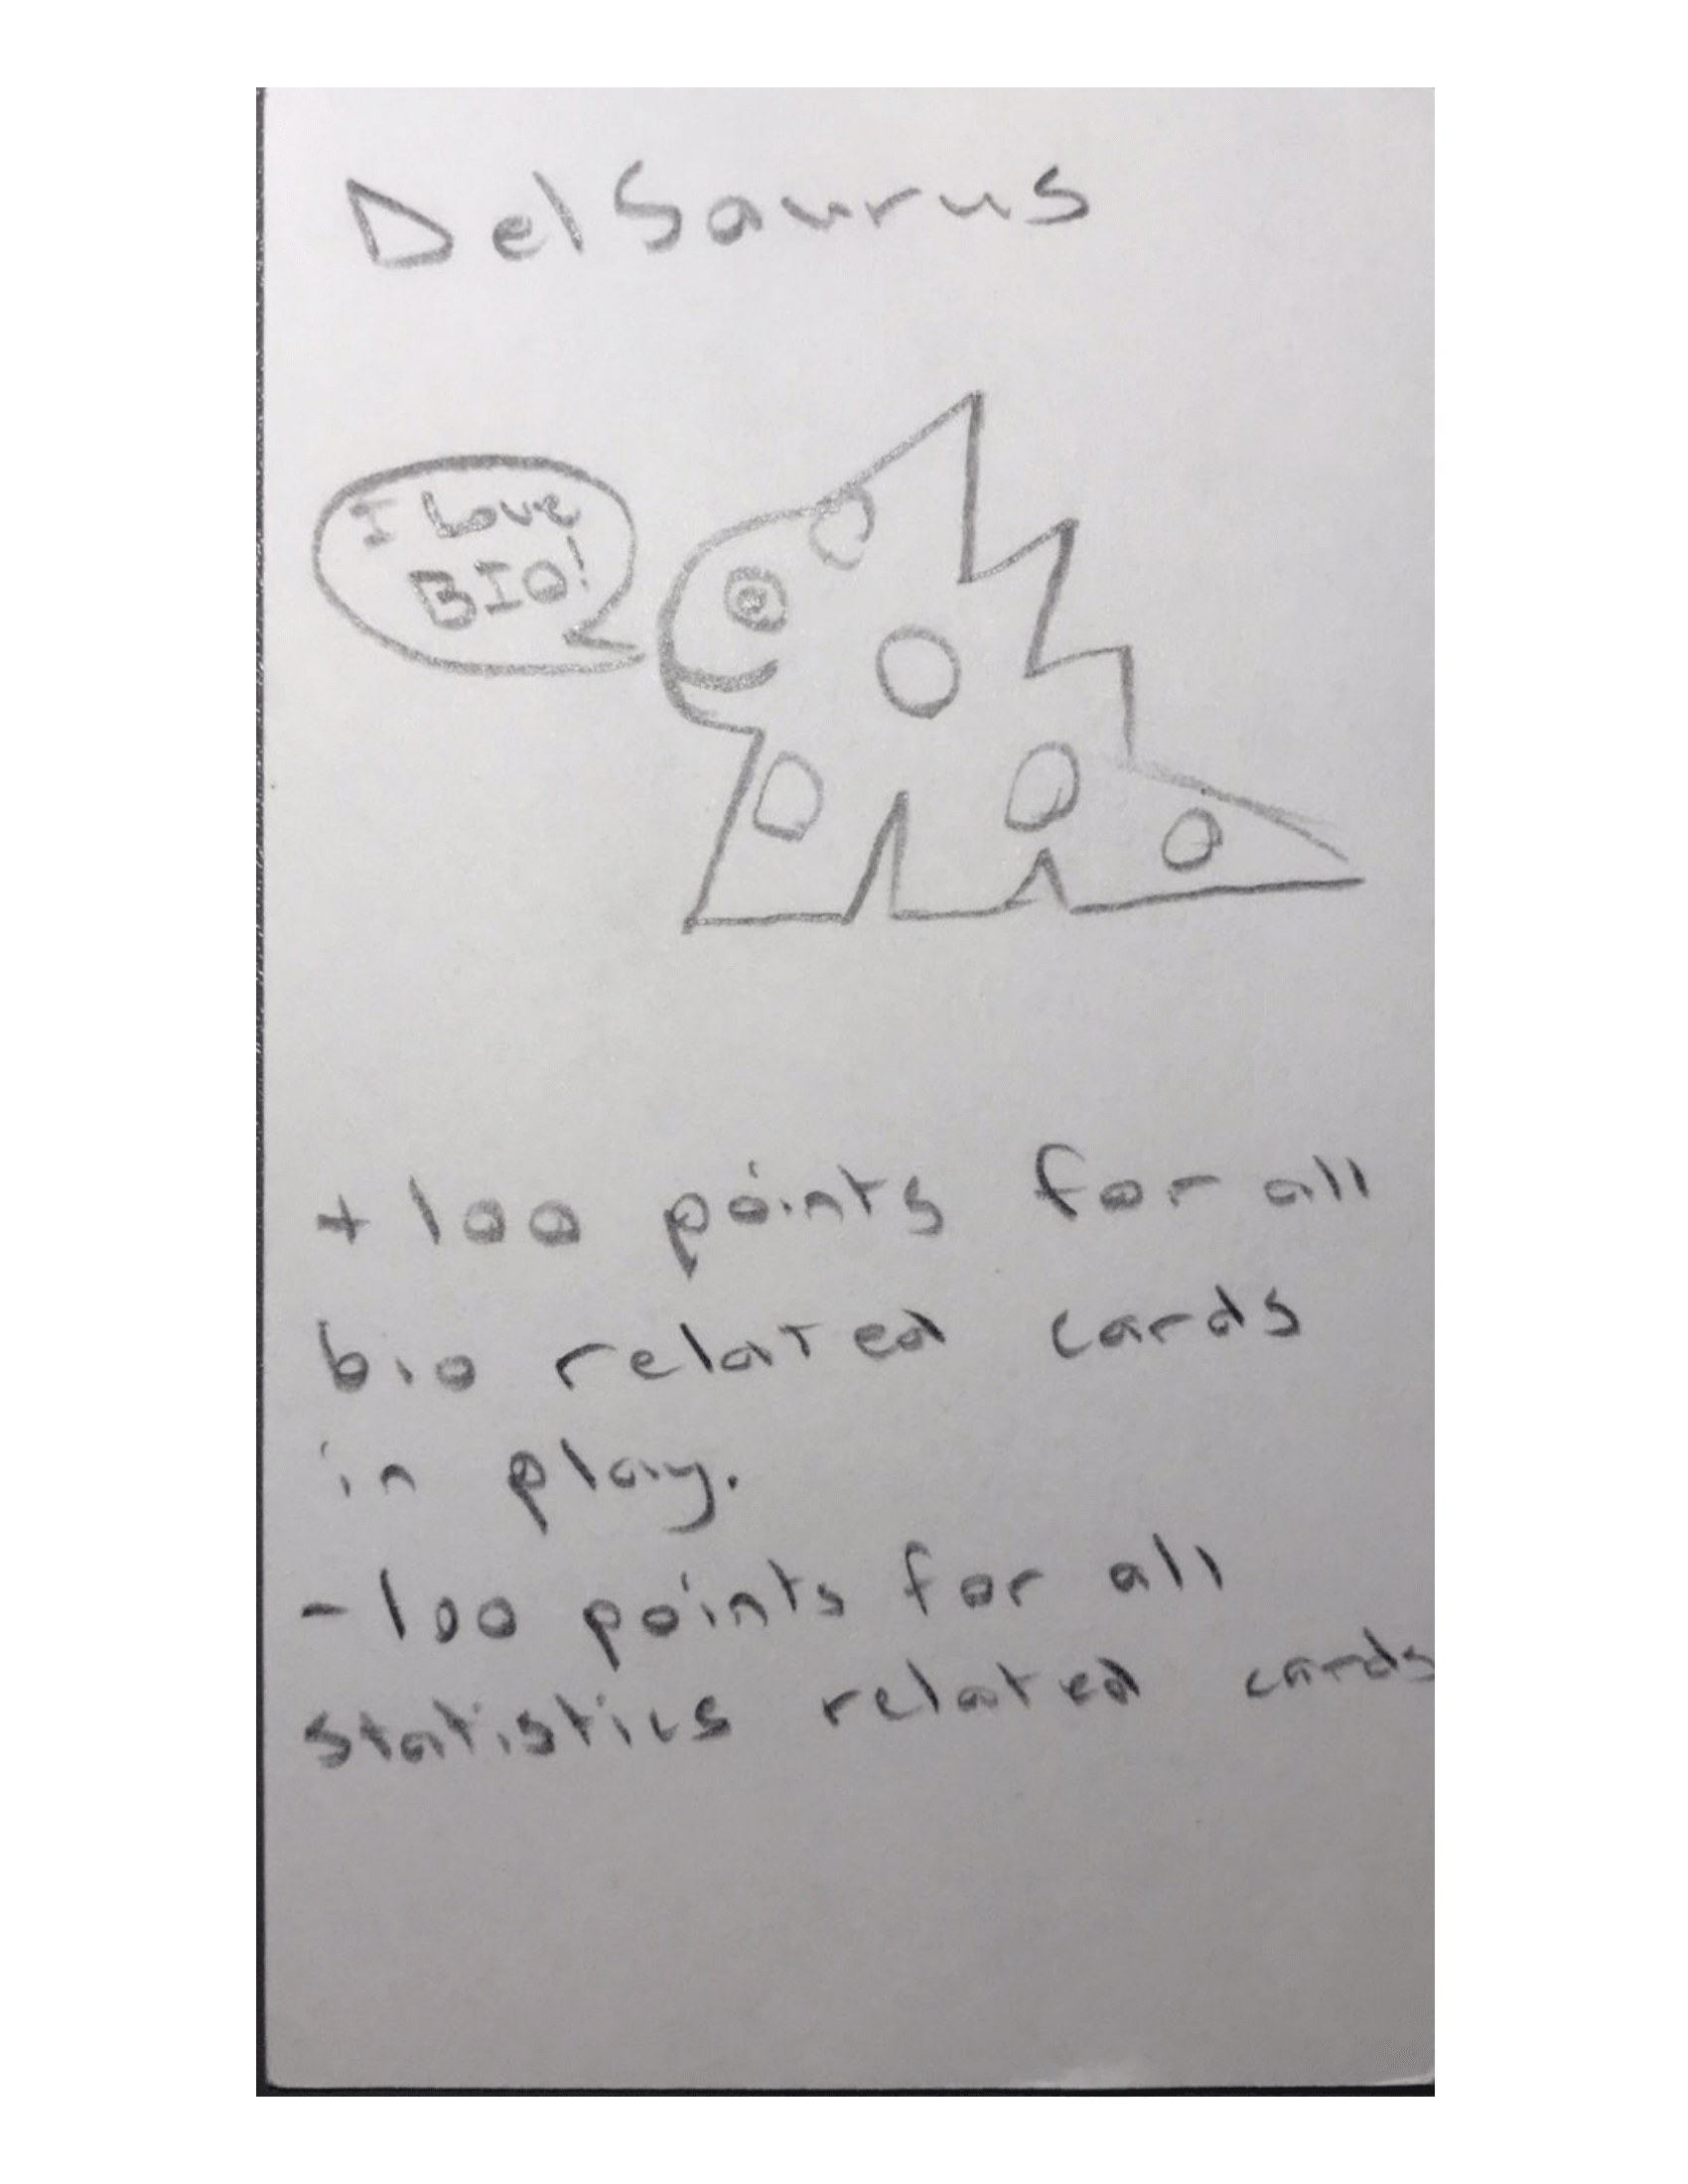 DelSaurus
I Love
BIO!
+ 100 points for all
bio related cards
in play.
- 100 points for all
statistics related cards